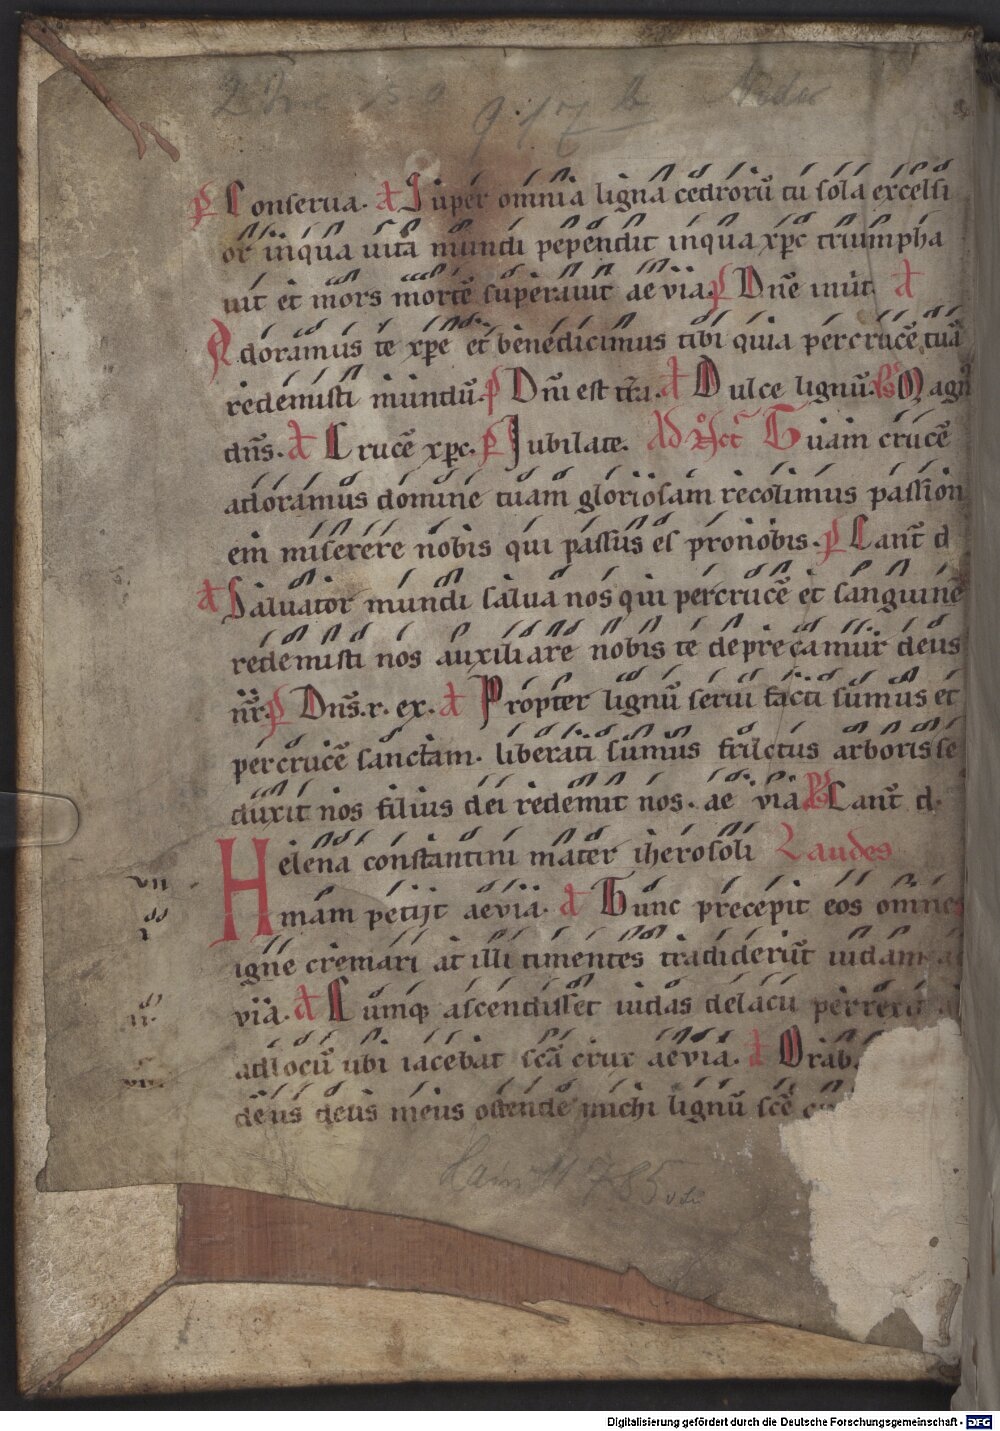 2 Inc
917 b Nider
P Conserua. A Super omnia ligna cedrorū tu sola excelsi
or inqua uita mundi pependit inqua xp̄c triumpha
uit et mors mortē superauit ae via. P Dn̄e inuit A
Adoramus te xp̄e et benedicimus tibi quia percrucē tuā
redemisti mundū. P Dn̄i est tr̄a. A Dulce lignū. Ps Magn
dn̄s. A Crucē xp̄c. P Jubilate. Ad Noct Tuam crucē
adoramus domine tuam gloriosam recolimus passion
em miserere nobis qui passus es pronobis. P Cant̄ d
A Saluator mundi salua nos qui percrucē et sanguinē
redemisti nos auxiliare nobis te deprecamur deus
nr̄. P Dn̄s. r. ex. A Propter lignū serui facti sumus et
percrucē sanctam. liberati sumus fructus arboris se
duxit nos filius dei redemit nos. ae via Ps Cant̄ d.
Helena constantini mater iherosoli Laudes
vii
mam petijt aevia. A Tunc precepit eos omnes
igne cremari at illi timentes tradiderūt iudam
via. A Cumq; ascendisset iudas delacu perrexit
adlocū ubi iacebat sc̄a crux aevia. A Orab.
deus deus meus ostende michi lignū sc̄e
Hain 11785
Digitalisierung gefördert durch die Deutsche Forschungsgemeinschaft - DFG